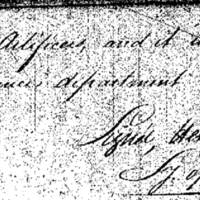 Artificers, and it
department
Signd, He
Sy of